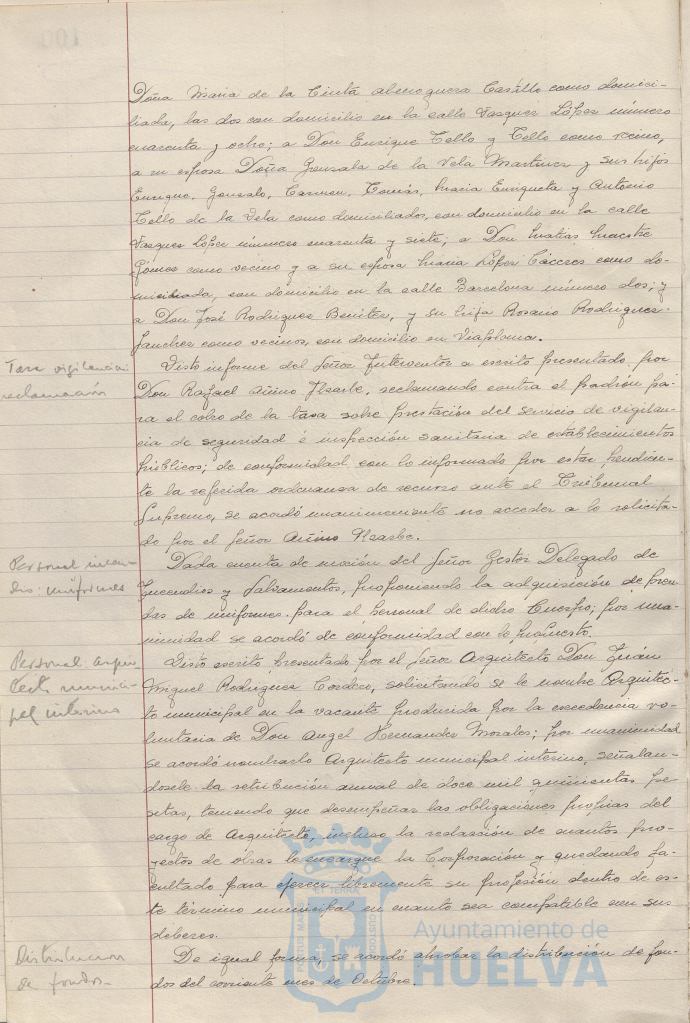 Doña Maria de la Cinta Almoguera Castillo como domici-
liada, las dos con domicilio en la calle Vasquez López número
cuarenta y ocho; a Don Enrique Tello y Tello como vecino,
a su esposa Doña Gonzala de la Vela Martinez y sus hijos
Enrique, Gonzalo, Carmen, Tomás, Maria Enriqueta y Antonio
Tello de la Vela como domiciliados, con domicilio en la calle
Vasquez López número cuarenta y siete; a Don Matias Maestre
Gómez como vecino y a su esposa Maria López Cácceres como do-
miciliada, con domicilio en la calle Barcelona número dos; y
a Don José Rodriguez Benitez, y su hija Rosario Rodriguez
Sanchez como vecinos, con domicilio en Viaplana.
Tasa vigilancia:
reclamación
Visto informe del Señor Interventor a escrito presentado por
Don Rafael Ariño, reclamando contra el padrón pa-
ra el cobro de la tasa sobre prestación del servicio de vigilan-
cia de seguridad é inspección sanitaria de establecimientos
públicos; de conformidad con lo informado por estar pendien-
te la referida ordenanza de recurso ante el Tribunal
Supremo, se acordó unanimemente no acceder a lo solicita-
do por el Señor Ariño.
Personal incen-
dios: uniformes
Dada cuenta de moción del Señor Gestor Delegado de
Incendios y Salvamentos, proponiendo la adquisición de pren-
das de uniformes para el personal de dicho Cuerpo; por una-
nimidad se acordó de conformidad con lo propuesto.
Personal: arqui-
tecto munici-
pal interino
Visto escrito presentado por el Señor Arquitecto Don Juán
Miguel Rodriguez Cordero, solicitando se le nombre Arquitec-
to municipal en la vacante producida por la excedencia vo-
luntaria de Don Angel Hernandez Morales; por unanimidad
se acordó nombrarlo Arquitecto municipal interino, señalan-
dosele la retribución anual de doce mil quinientas pe-
setas, teniendo que desempeñar las obligaciones propias del
cargo de Arquitecto, incluso la redacción de cuantos pro-
yectos de obras le encargue la Corporación y quedando fa-
cultado para ejercer libremente su profesión dentro de es-
te término municipal en cuanto sea compatible con sus
deberes.
Distribucion
de fondos.-
De igual forma, se acordó aprobar la distribución de fon-
dos del corriente mes de Octubre.
Ayuntamiento de
HUELVA